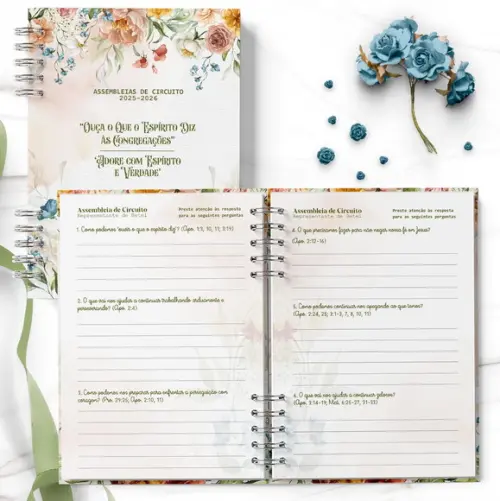 ASSEMBLEIAS DE CIRCUITO
2025-2026
"Ouça o Que o Espírito Diz
às Congregações"
"Adore com Espírito
e Verdade"
Assembleia de Circuito
Representante de Betel
Preste atenção às resposta
para as seguintes perguntas
1. Como podemos 'ouvir o que o espírito diz'? (Apo. 1:3, 10, 11; 3:19)
2. O que vai nos ajudar a continuar trabalhando arduamente e
perseverando? (Apo. 2:4)
3. Como podemos nos preparar para enfrentar a perseguição com
coragem? (Pro. 29:25; Apo. 2:10, 11)
Assembleia de Circuito
Representante de Betel
Preste atenção às resposta
para as seguintes perguntas
4. O que precisamos fazer para não negar nossa fé em Jesus?
(Apo. 2:12-16)
5. Como podemos continuar nos apegando ao que temos?
(Apo. 2:24, 25; 3:1-3, 7, 8, 10, 11)
6. O que vai nos ajudar a continuar zelosos?
(Apo. 3:14-19; Mat. 6:25-27, 31-33)